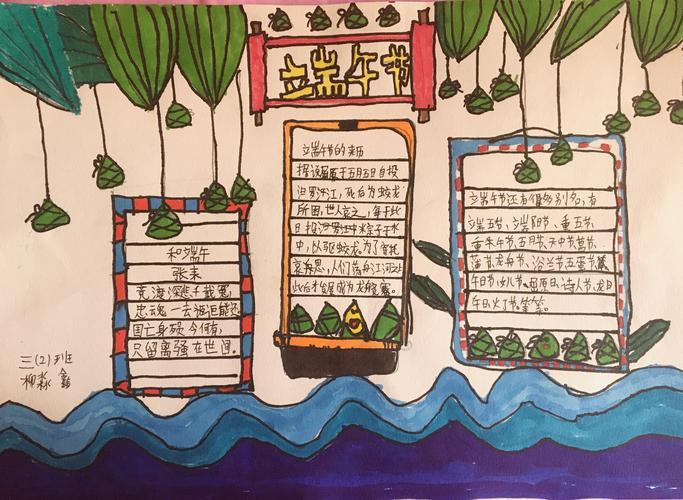 端午节
和端午
张耒
竞渡深悲千载冤,
忠魂一去讵能还
国亡身殒今何有,
只留离骚在世间。
端午节的来历
据说屈原于五月五日自投
汨罗江,死后为蛟龙
所困,世人哀之,每于此
日投汨罗江中米粽子于水
中,以驱蛟龙。为了寄托
哀思,人们荡舟江河之上
此后才发展成为龙舟竞赛。
端午节还有很多别名,有
端五节、端阳节、重五节、
重午节、五月节、天中节
龙舟节、浴兰节、五蛋节
午日节、女儿节、屈原日、诗人节、龙日
午日、灯节、等等。
三(2)班
柳淼鑫